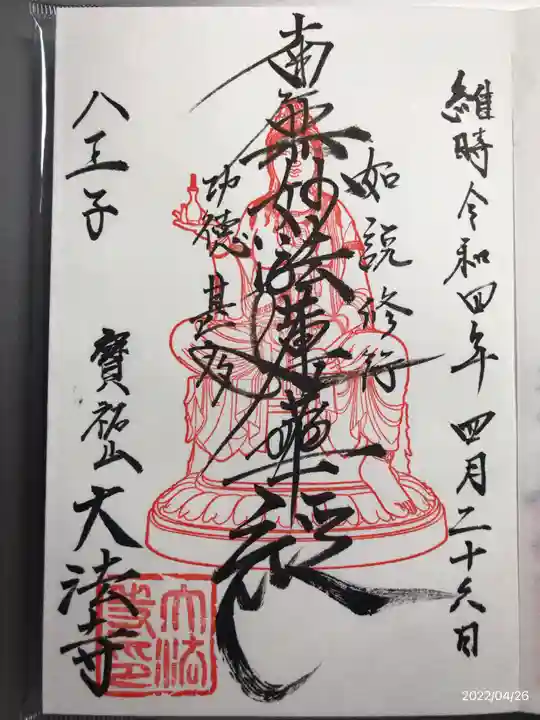 維時令和四年四月二十六日
如説修行
南無妙法蓮華経
功徳甚多
八王子
寳祐山大法寺
2022/04/26